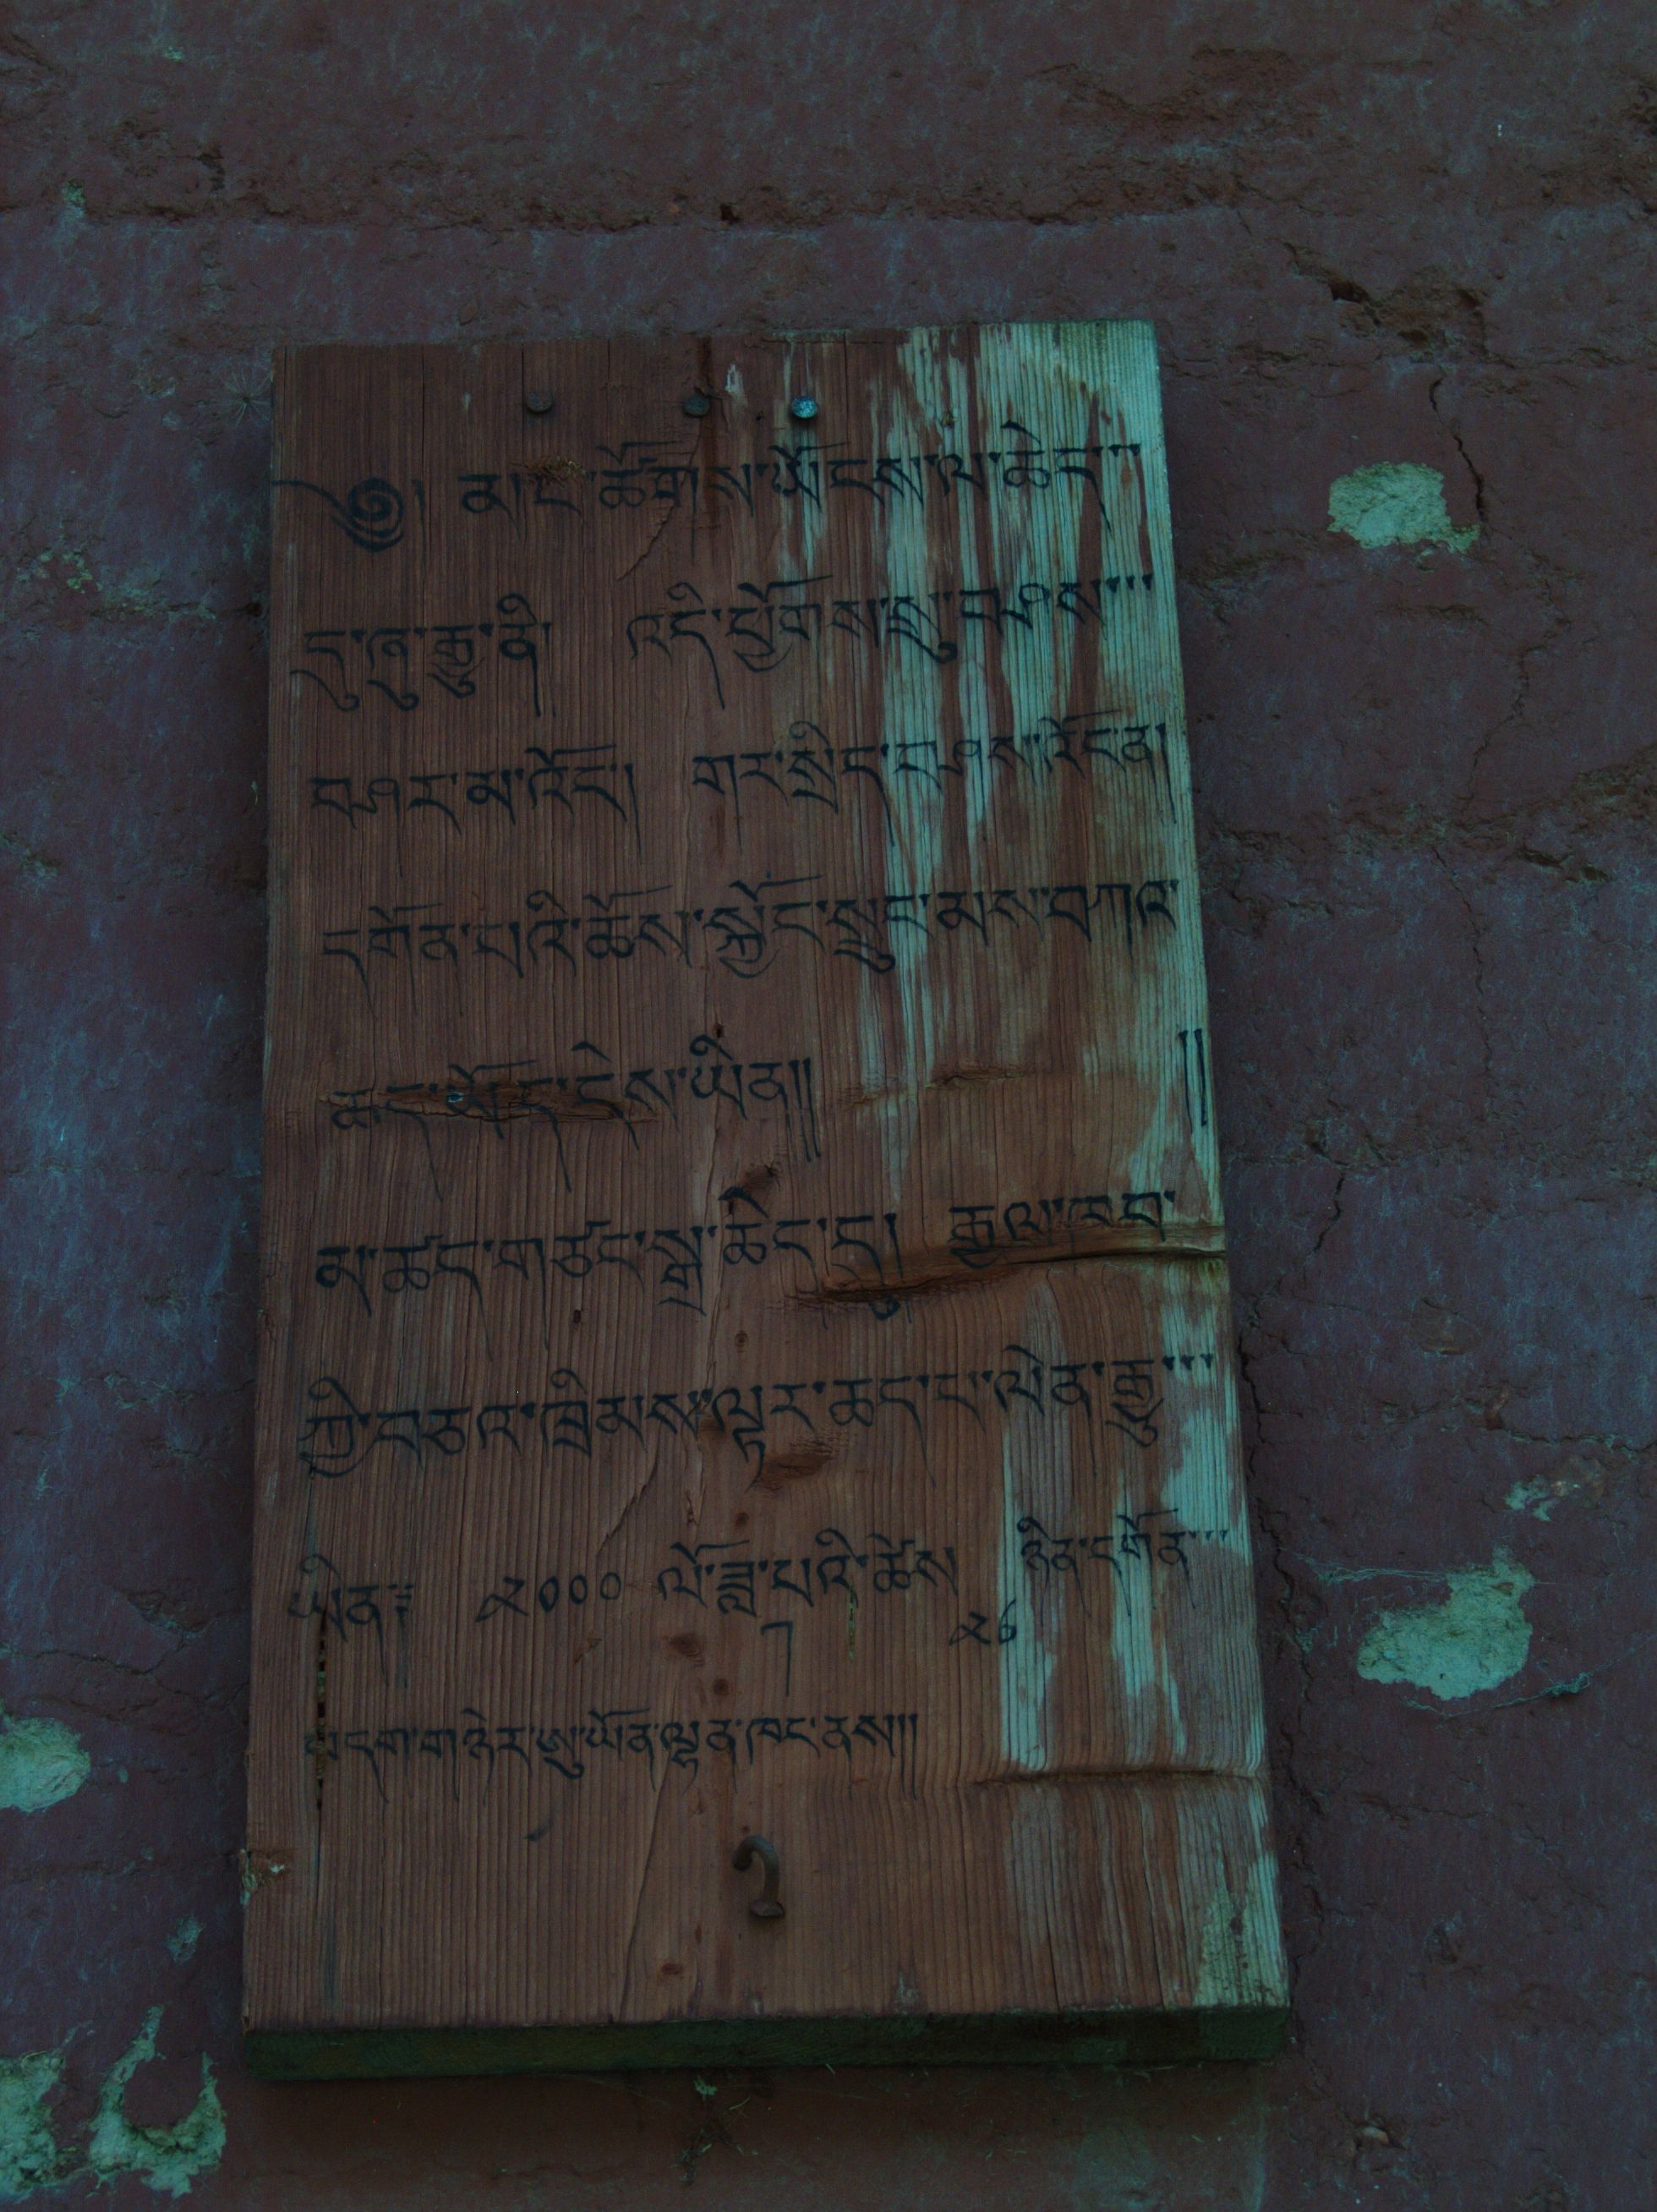 ༄། མང་ཚོགས་ཡོངས་ལ་ཆེད་
དུ་ཞུ་རྒྱུ་ནི། འདི་ཕྱོགས་སུ་བཤས་
བཤར་མ་འོང་། གར་སྲིད་བཤས་འོང་ན།
དགོན་པའི་ཆོས་སྐྱོང་སྲུང་མས་བཀའ་
ཆད་ཡོད་ངེས་ཡིན།། །།
མ་ཚད་གཙང་སྦྲ་ཆེད་དུ། རྒྱལ་ཁབ་
ཀྱི་བཅའ་ཁྲིམས་ལྟར་ཆད་པ་ལེན་རྒྱུ་
ཡིན༔ ༢༠༠༠ ལོ་ཟླ་པའི་ཚེས ༢༦ ཉིན་དགོན་
༡
བདག་གཉེར་ཨུ་ཡོན་ལྷན་ཁང་ནས།།